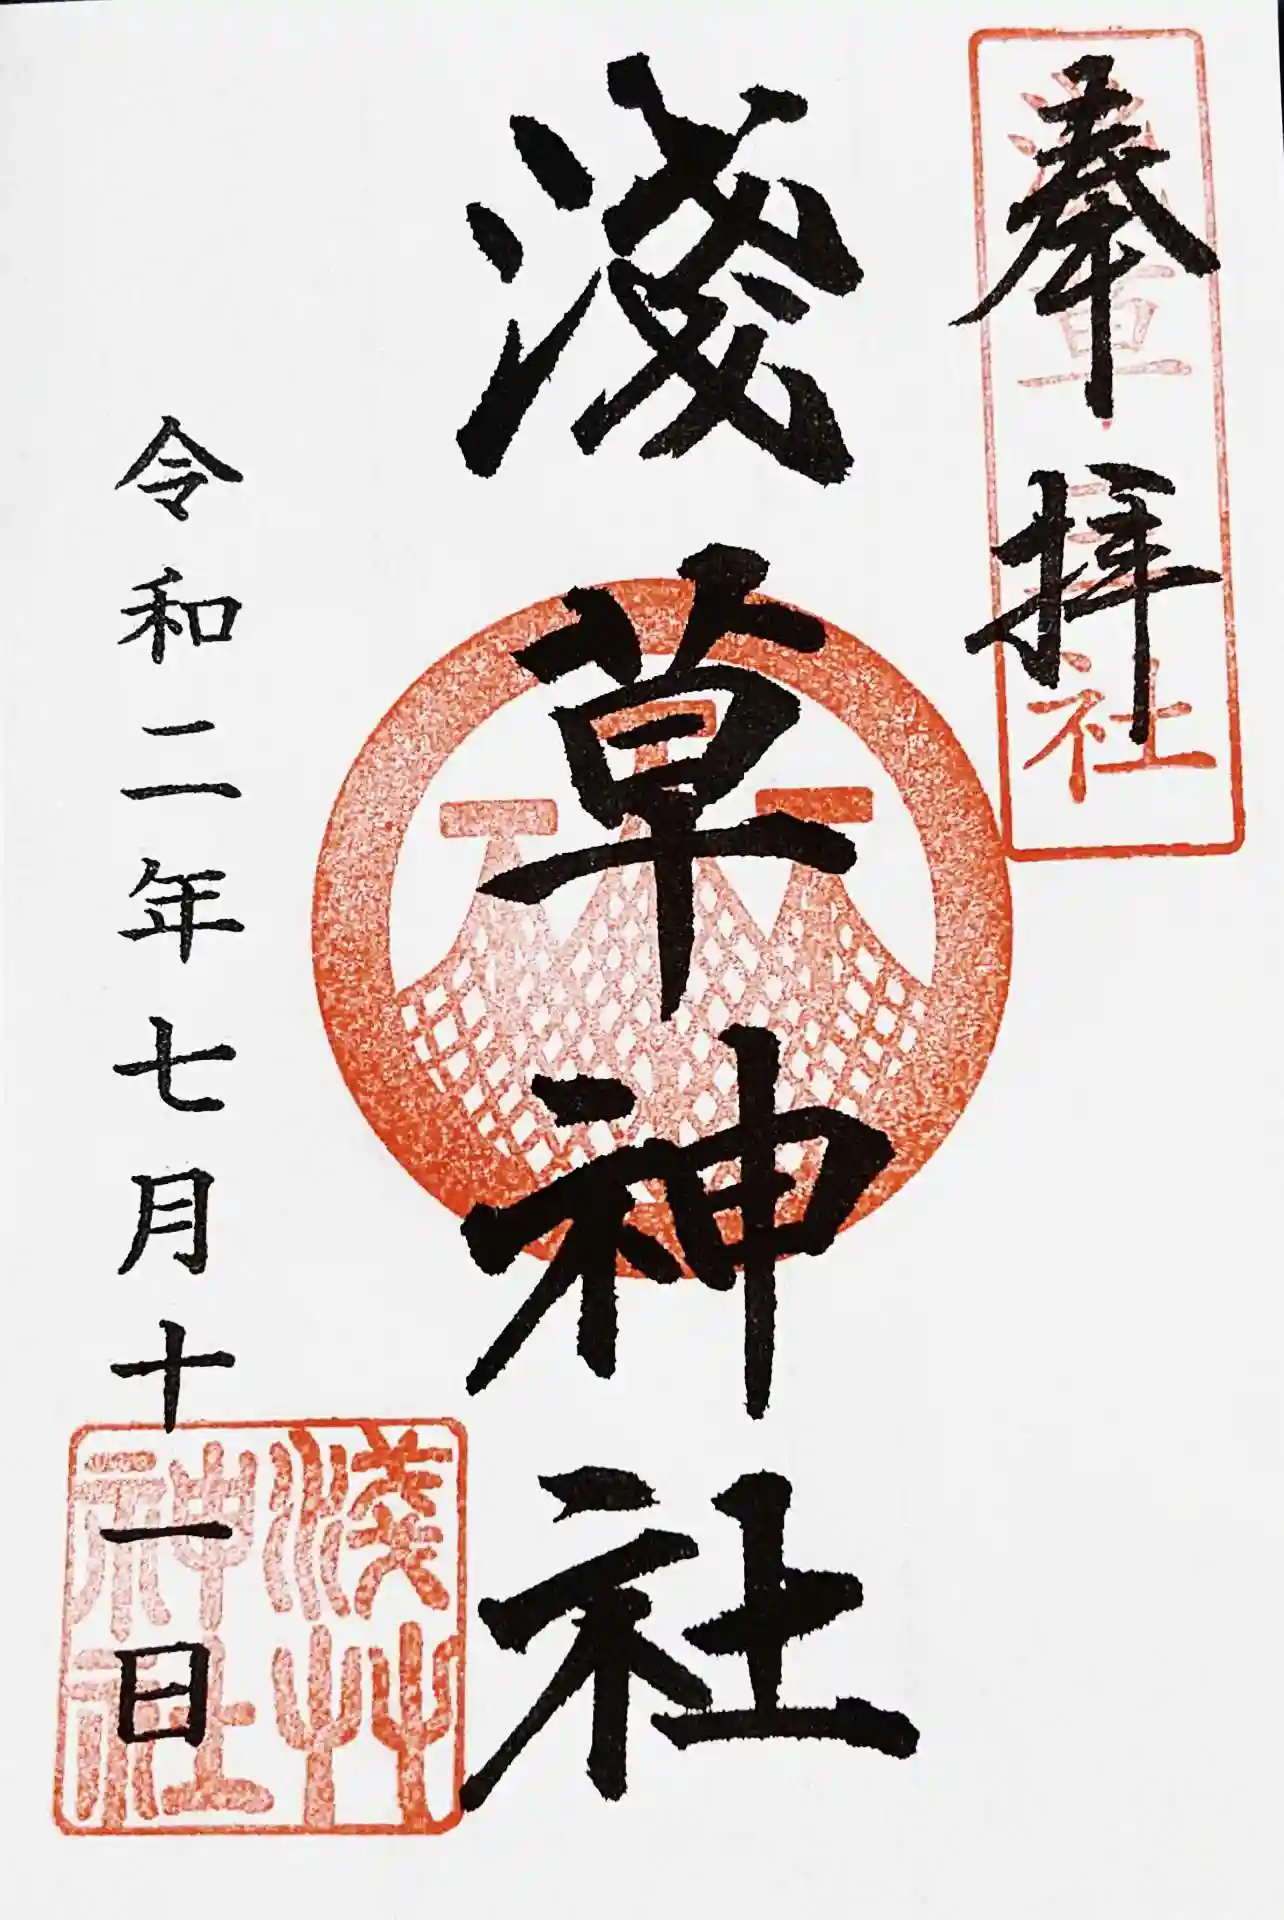 奉拝
淺草神社
令和二年七月十一日
淺艸
神社